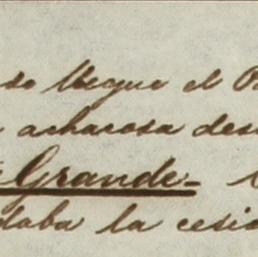 se llegue el P
acharosa des
Grande-
daba la cesi